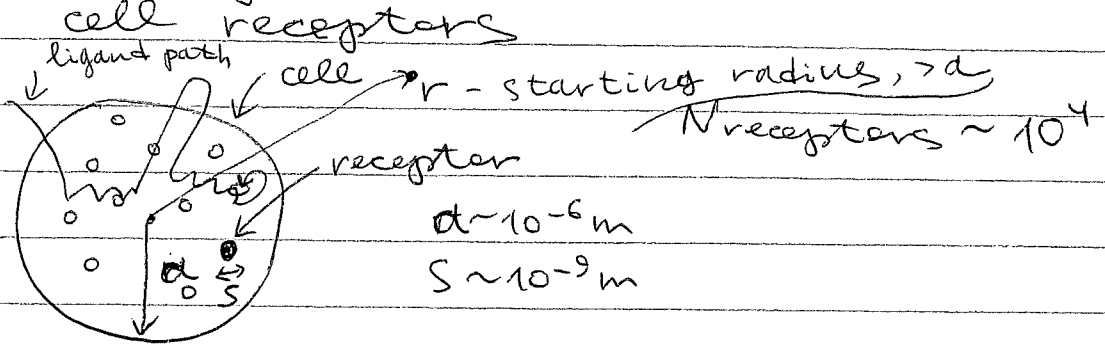 cell receptors
ligand path
cell
r - starting radius, >a
Nreceptors ~ 10⁴
receptor
a ~ 10⁻⁶ m
S ~ 10⁻⁹ m
a
S